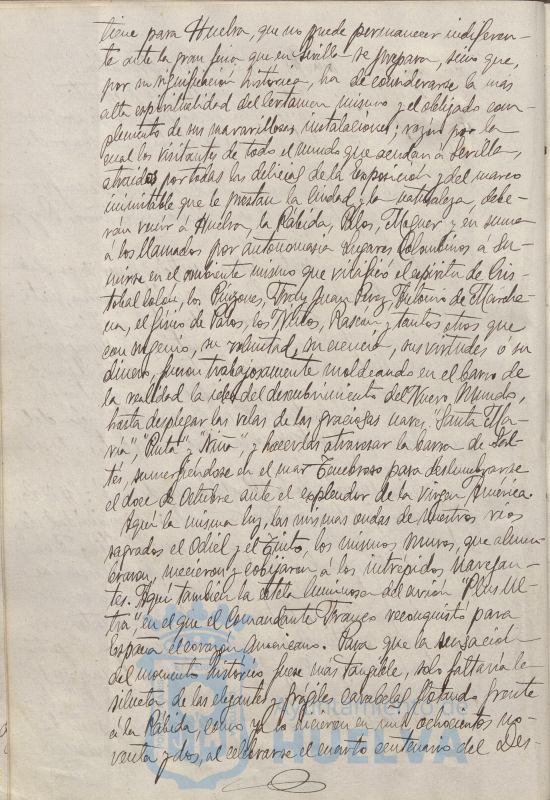 tiene para Huelva, que no puede permanecer indiferen-
te ante la gran feria que en Sevilla se prepara, sino que,
por su significacion histórica, ha de considerarse la más
alta espiritualidad del Certamen mismo y el obligado com-
plemento de sus maravillosas instalaciones; razón por la
cual los visitantes de todo el mundo que acudan á Sevilla,
atraidos por todas las delicias de la Exposición y del marco
inimitable que le prestan la Ciudad y la naturaleza, debe-
rán venir á Huelva, la Rábida, Palos, Moguer y en suma
á los llamados por autonomasia Lugares Colombinos a su-
mirse en el ambiente mismo que vivificó el espíritu de Cris-
tobal Colon, los Pinzones, Fray Juan Perez, Antonio de Marche-
na, el físico de Palos, los Niños, Rascon y tantos otros que
con su genio, su voluntad, su ciencia, sus virtudes ó su
dinero, fueron trabajosamente moldeando en el barro de
la realidad la idea del descubrimiento del Nuevo Mundo,
hasta desplegar las velas de las graciosas naves "Santa Ma-
ría", "Pinta" y "Niña" y hacerlas atravesar la barra de Sal-
tés, sumergiendose en el mar Tenebroso para deslumbrarse
el doce de Octubre ante el esplendor de la Virgen América.
Aquí la misma luz, las mismas ondas de nuestros rios
sagrados el Odiel y el Tinto, los mismos muros, que alum-
braron, mecieron y cobijaron á los intrépidos navegan-
tes. Aquí tambien la estela luminosa del avión "Plus Ul-
tra", en el que el Comandante Franco reconquistó para
España el corazón Americano. Para que la sensación
del momento histórico fuese más tangible, solo faltaría la
silueta de las elegantes y frágiles carabelas flotando frente
á la Rábida, como ya lo hicieron en mil ochocientos no-
venta y dos, al celebrarse el cuarto centenario del Des-
Ayuntamiento de
HUELVA